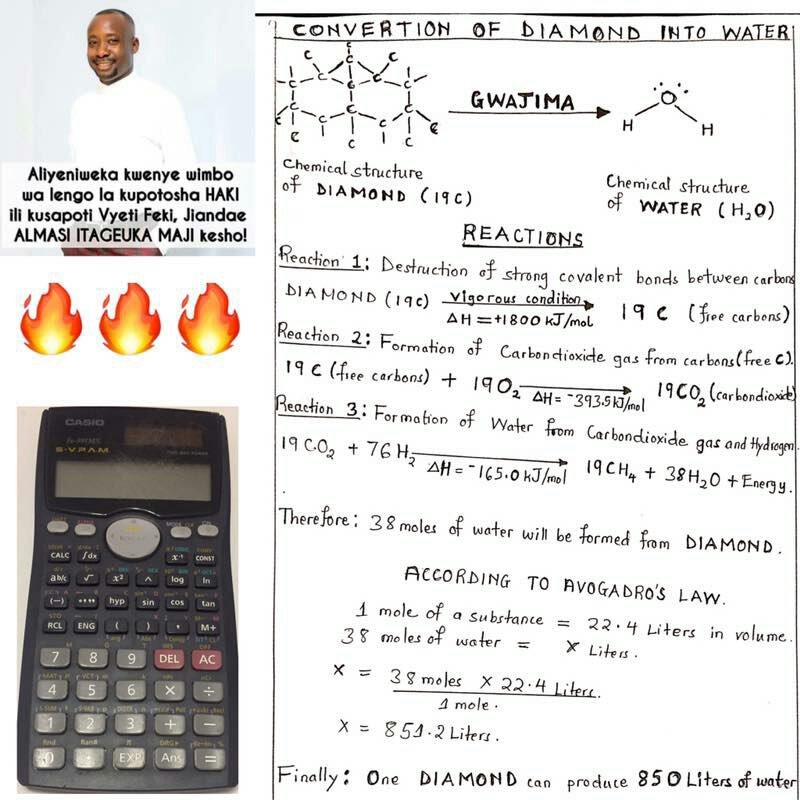 Aliyeniweka kwenye wimbo
wa lengo la kupotosha HAKI
ili kusapoti Vyeti Feki, Jiandae
ALMASI ITAGEUKA MAJI kesho!
CONVERTION OF DIAMOND INTO WATER
C
C C C C
C C C C
C C C
C C C C
GWAJIMA
O
H H
Chemical structure
of DIAMOND (19C)
Chemical structure
of WATER (H₂O)
REACTIONS
Reaction 1: Destruction of strong covalent bonds between carbons
DIAMOND (19C) vigorous condition 19 C (free carbons)
ΔH = +1800 kJ/mol
Reaction 2: Formation of Carbondioxide gas from carbons (free C).
19 C (free carbons) + 19O₂ 19CO₂ (carbondioxide)
ΔH = ⁻393.5 kJ/mol
Reaction 3: Formation of Water from Carbondioxide gas and Hydrogen.
19CO₂ + 76H₂ 19CH₄ + 38H₂O + Energy.
ΔH = ⁻165.0 kJ/mol
Therefore: 38 moles of water will be formed from DIAMOND.
ACCORDING TO AVOGADRO'S LAW.
1 mole of a substance = 22.4 Liters in volume.
38 moles of water = X Liters.
X = 38 moles X 22.4 Liters.
1 mole.
X = 851.2 Liters.
Finally: One DIAMOND can produce 850 Liters of water
CASIO
S-V.P.A.M.
MODE
ON
CALC ∫dx x⁻¹ CONST
ab/c √ x² ^ log ln
(−) °'" hyp sin cos tan
RCL ENG ( ) , M+
7 8 9 DEL AC
4 5 6 × ÷
1 2 3 + −
0 · EXP Ans =